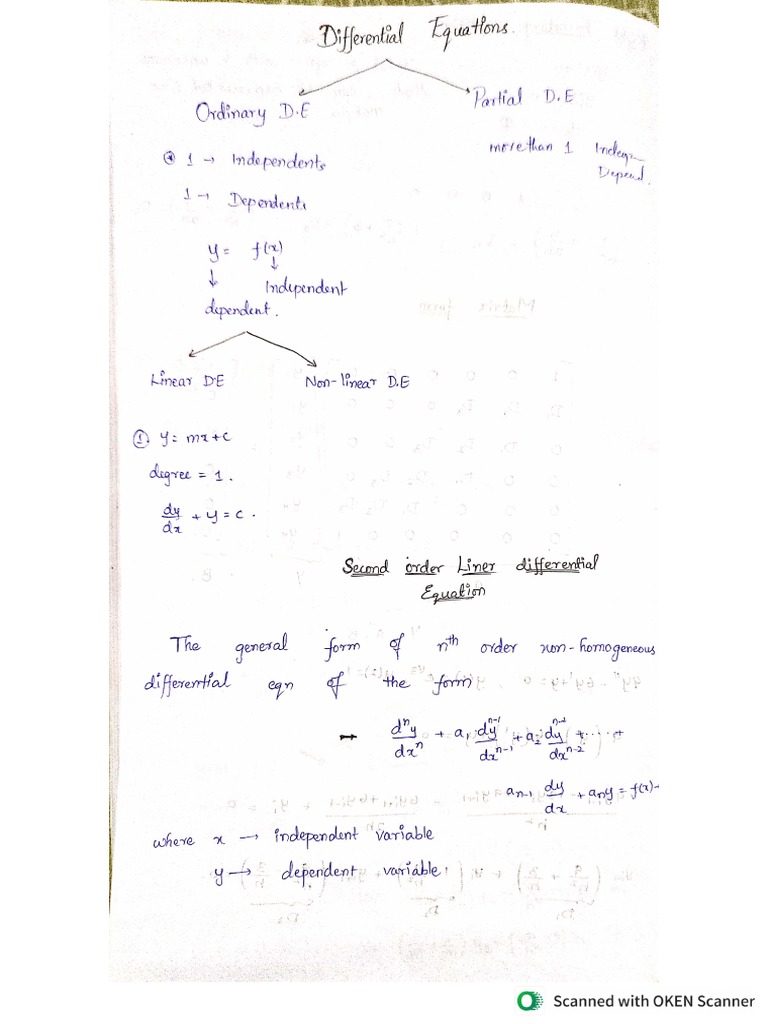 Differential Equations.
Ordinary D.E
Partial D.E
1 → Independents
more than 1 Indep
Depend.
1 → Dependents
y = f(x)
↓ ↓
Independent
dependent.
Linear DE
Non-linear D.E
① y = mx+c
degree = 1.
dy/dx + y = c.
Second order Liner differential
Equation
The general form of nth order non-homogeneous
differential eqn of the form
dⁿy/dxⁿ + a₁ dⁿ⁻¹y/dxⁿ⁻¹ + a₂ dⁿ⁻²y/dxⁿ⁻² + ..... +
aₙ₋₁ dy/dx + aₙy = f(x)-
where x → independent variable
y → dependent variable.
Scanned with OKEN Scanner